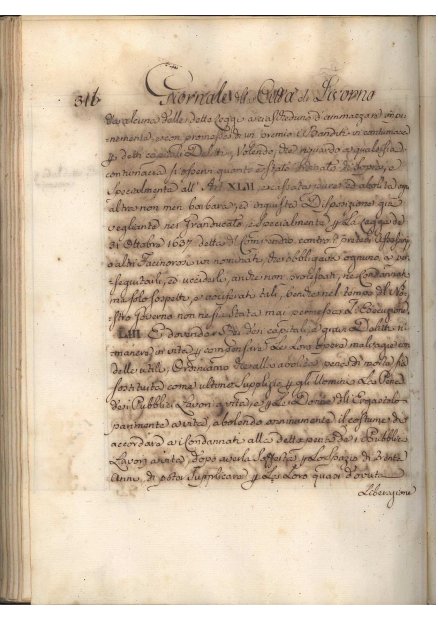 316 Giornale della Città di Livorno
da alcune delle dette Leggi a ciascheduno d'ammazzare impu-
nemente, e con promessa di un premio i Banditi in contumacia
p detti capitali Delitti, Volendo, che riguardo a qualsisia
contumacia si osservi quanto è stato ordinato di sopra, e
specialmente all' Art. XLII
altra non men barbara, ed ingiusta Disposizione già
vegliante nel Granducato, e specialmente p La Legge de'
31 Ottobre 1637 detta il Compendio contro i predetti Assassini
o altri Facinorosi in nominati, che obbligava ognuno a per-
seguitarli, ed ucciderli, anche non processati, ne Condannati
ma solo sospetti, e accusati tali, benchè nel tempo del No-
stro Governo non ne sia stata mai permessa L'Esecuzione.
LIII. E dovendo i Rei dei capitali, e gravi Delitti ri-
manere in vita p compensare Le Loro opere malvagie con
delle utili, Ordiniamo che alla abolita pena di morte sia
sostituita come ultimo Supplizio p gli Uomini La Pena
dei Pubblici Lavori a vita, e p Le Donne dell'Ergastolo
parimente a vita, abolendo onninamente il costume di
accordare ai Condannati alla detta pena dei Pubblici
Lavori a vita, dopo averla sofferta p Lo spazio di Trenta
Anni, di poter supplicare p La Loro quasi dovuta
Liberazione